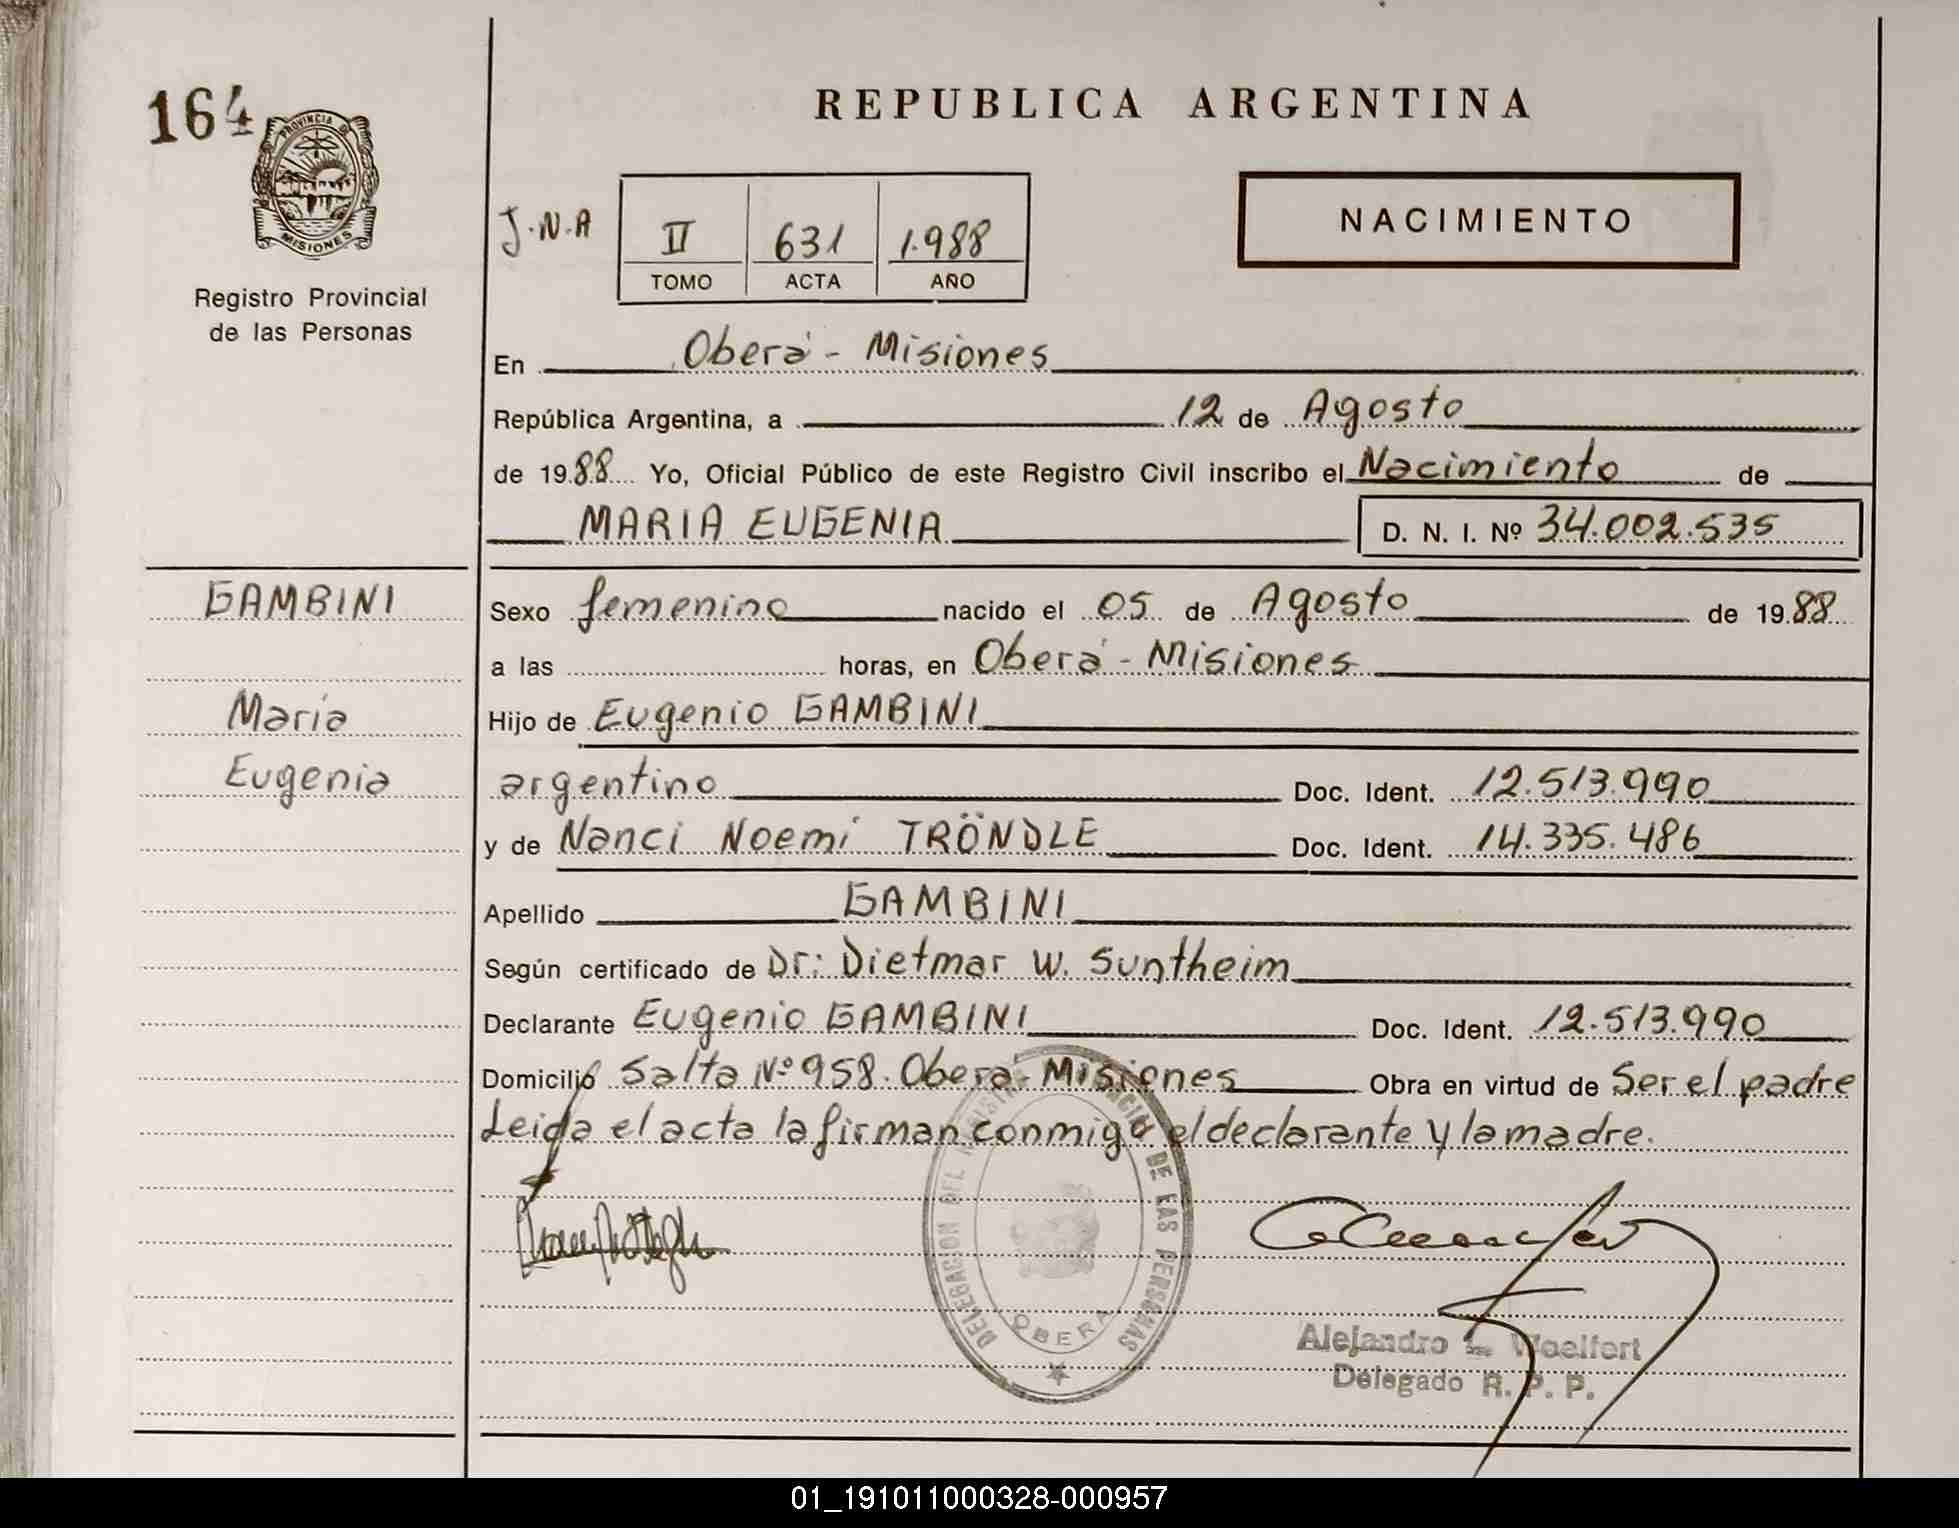 164
PROVINCIA DE
MISIONES
Registro Provincial
de las Personas
REPUBLICA ARGENTINA
J.N.A
II 631 1.988
TOMO ACTA AÑO
NACIMIENTO
En Oberá - Misiones
República Argentina, a 12 de Agosto
de 1988 Yo, Oficial Público de este Registro Civil inscribo el Nacimiento de
MARIA EUGENIA D. N. I. Nº 34.002.535
GAMBINI
María
Eugenia
Sexo femenino nacido el 05 de Agosto de 1988
a las horas, en Oberá - Misiones
Hijo de Eugenio GAMBINI
argentino Doc. Ident. 12.513.990
y de Nanci Noemí TRÖNDLE Doc. Ident. 14.335.486
Apellido GAMBINI
Según certificado de Dr: Dietmar W. Suntheim
Declarante Eugenio GAMBINI Doc. Ident. 12.513.990
Domicilio Salta Nº 958. Oberá - Misiones Obra en virtud de Ser el padre
Leida el acta la firman conmigo el declarante y la madre.
DELEGACION DEL REGISTRO PROVINCIAL DE LAS PERSONAS
OBERA
Alejandro L. Woelfert
Delegado R. P. P.
01_191011000328-000957